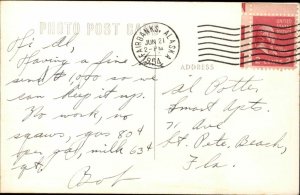 PHOTO POST CARD
FAIRBANKS, ALASKA
JUN 21
2 - PM
1954
ADDRESS
Hi Al,
Having a fine
send $1000 so we
can keep it up.
No work, no
squaws, gas 80¢
per gal, milk 63¢
qt.
Bob
Al Potter
Smart Apts.
71 Ave
St. Pete Beach,
Fla.